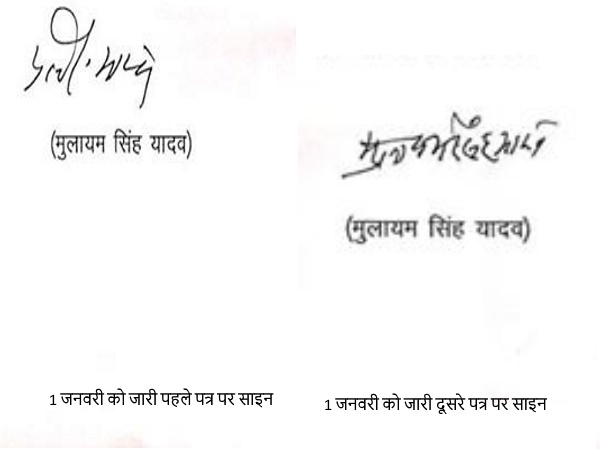 (मुलायम सिंह यादव)
(मुलायम सिंह यादव)
1 जनवरी को जारी पहले पत्र पर साइन
1 जनवरी को जारी दूसरे पत्र पर साइन